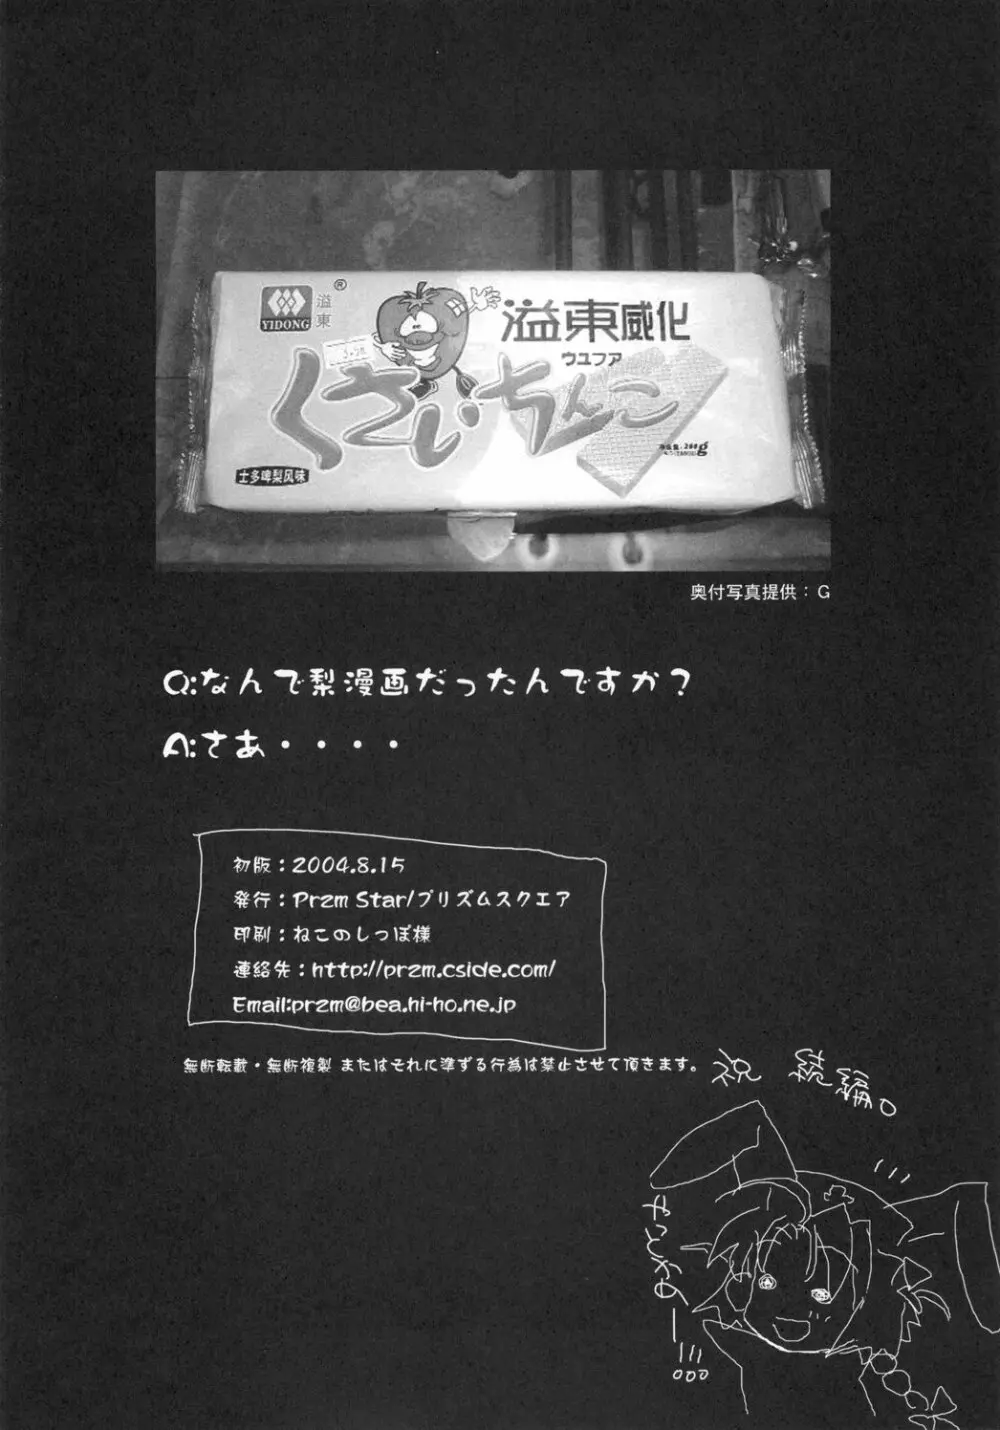 溢東
YIDONG
®
溢東威化
ウユフア
くさいちんこ
士多啤梨风味
奥付写真提供：G
Q:なんで梨漫画だったんですか？
A:さあ・・・・
初版：2004.8.15
発行：Przm Star/プリズムスクエア
印刷：ねこのしっぽ様
連絡先：http://przm.cside.com/
Email:przm@bea.hi-ho.ne.jp
無断転載・無断複製 またはそれに準ずる行為は禁止させて頂きます。
祝 続編。
やっとかぁー!!!